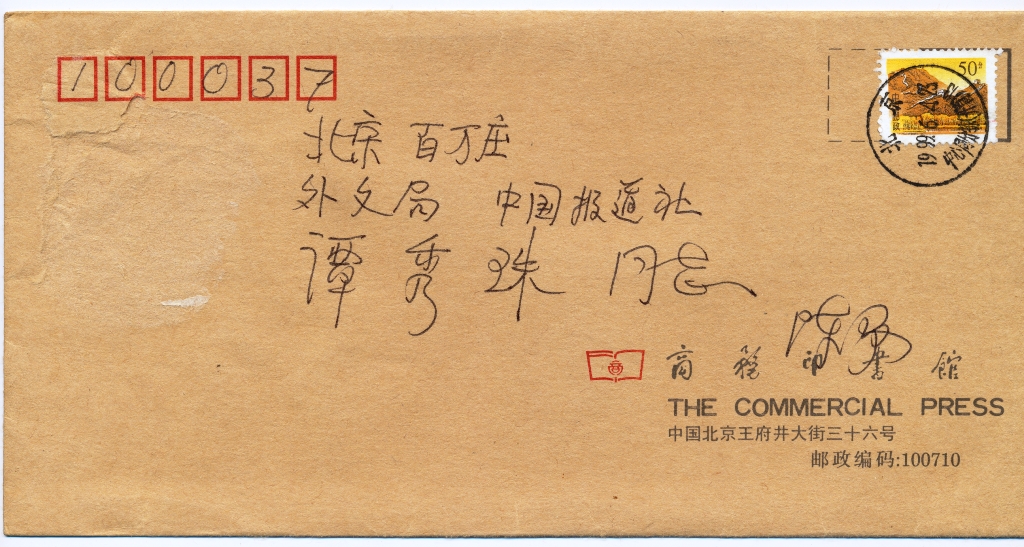 100037
50分
北京
1999.6.4.
北京 百万庄
外文局 中国报道社
谭秀珠 同志
陈
商務印書館
THE COMMERCIAL PRESS
中国北京王府井大街三十六号
邮政编码:100710